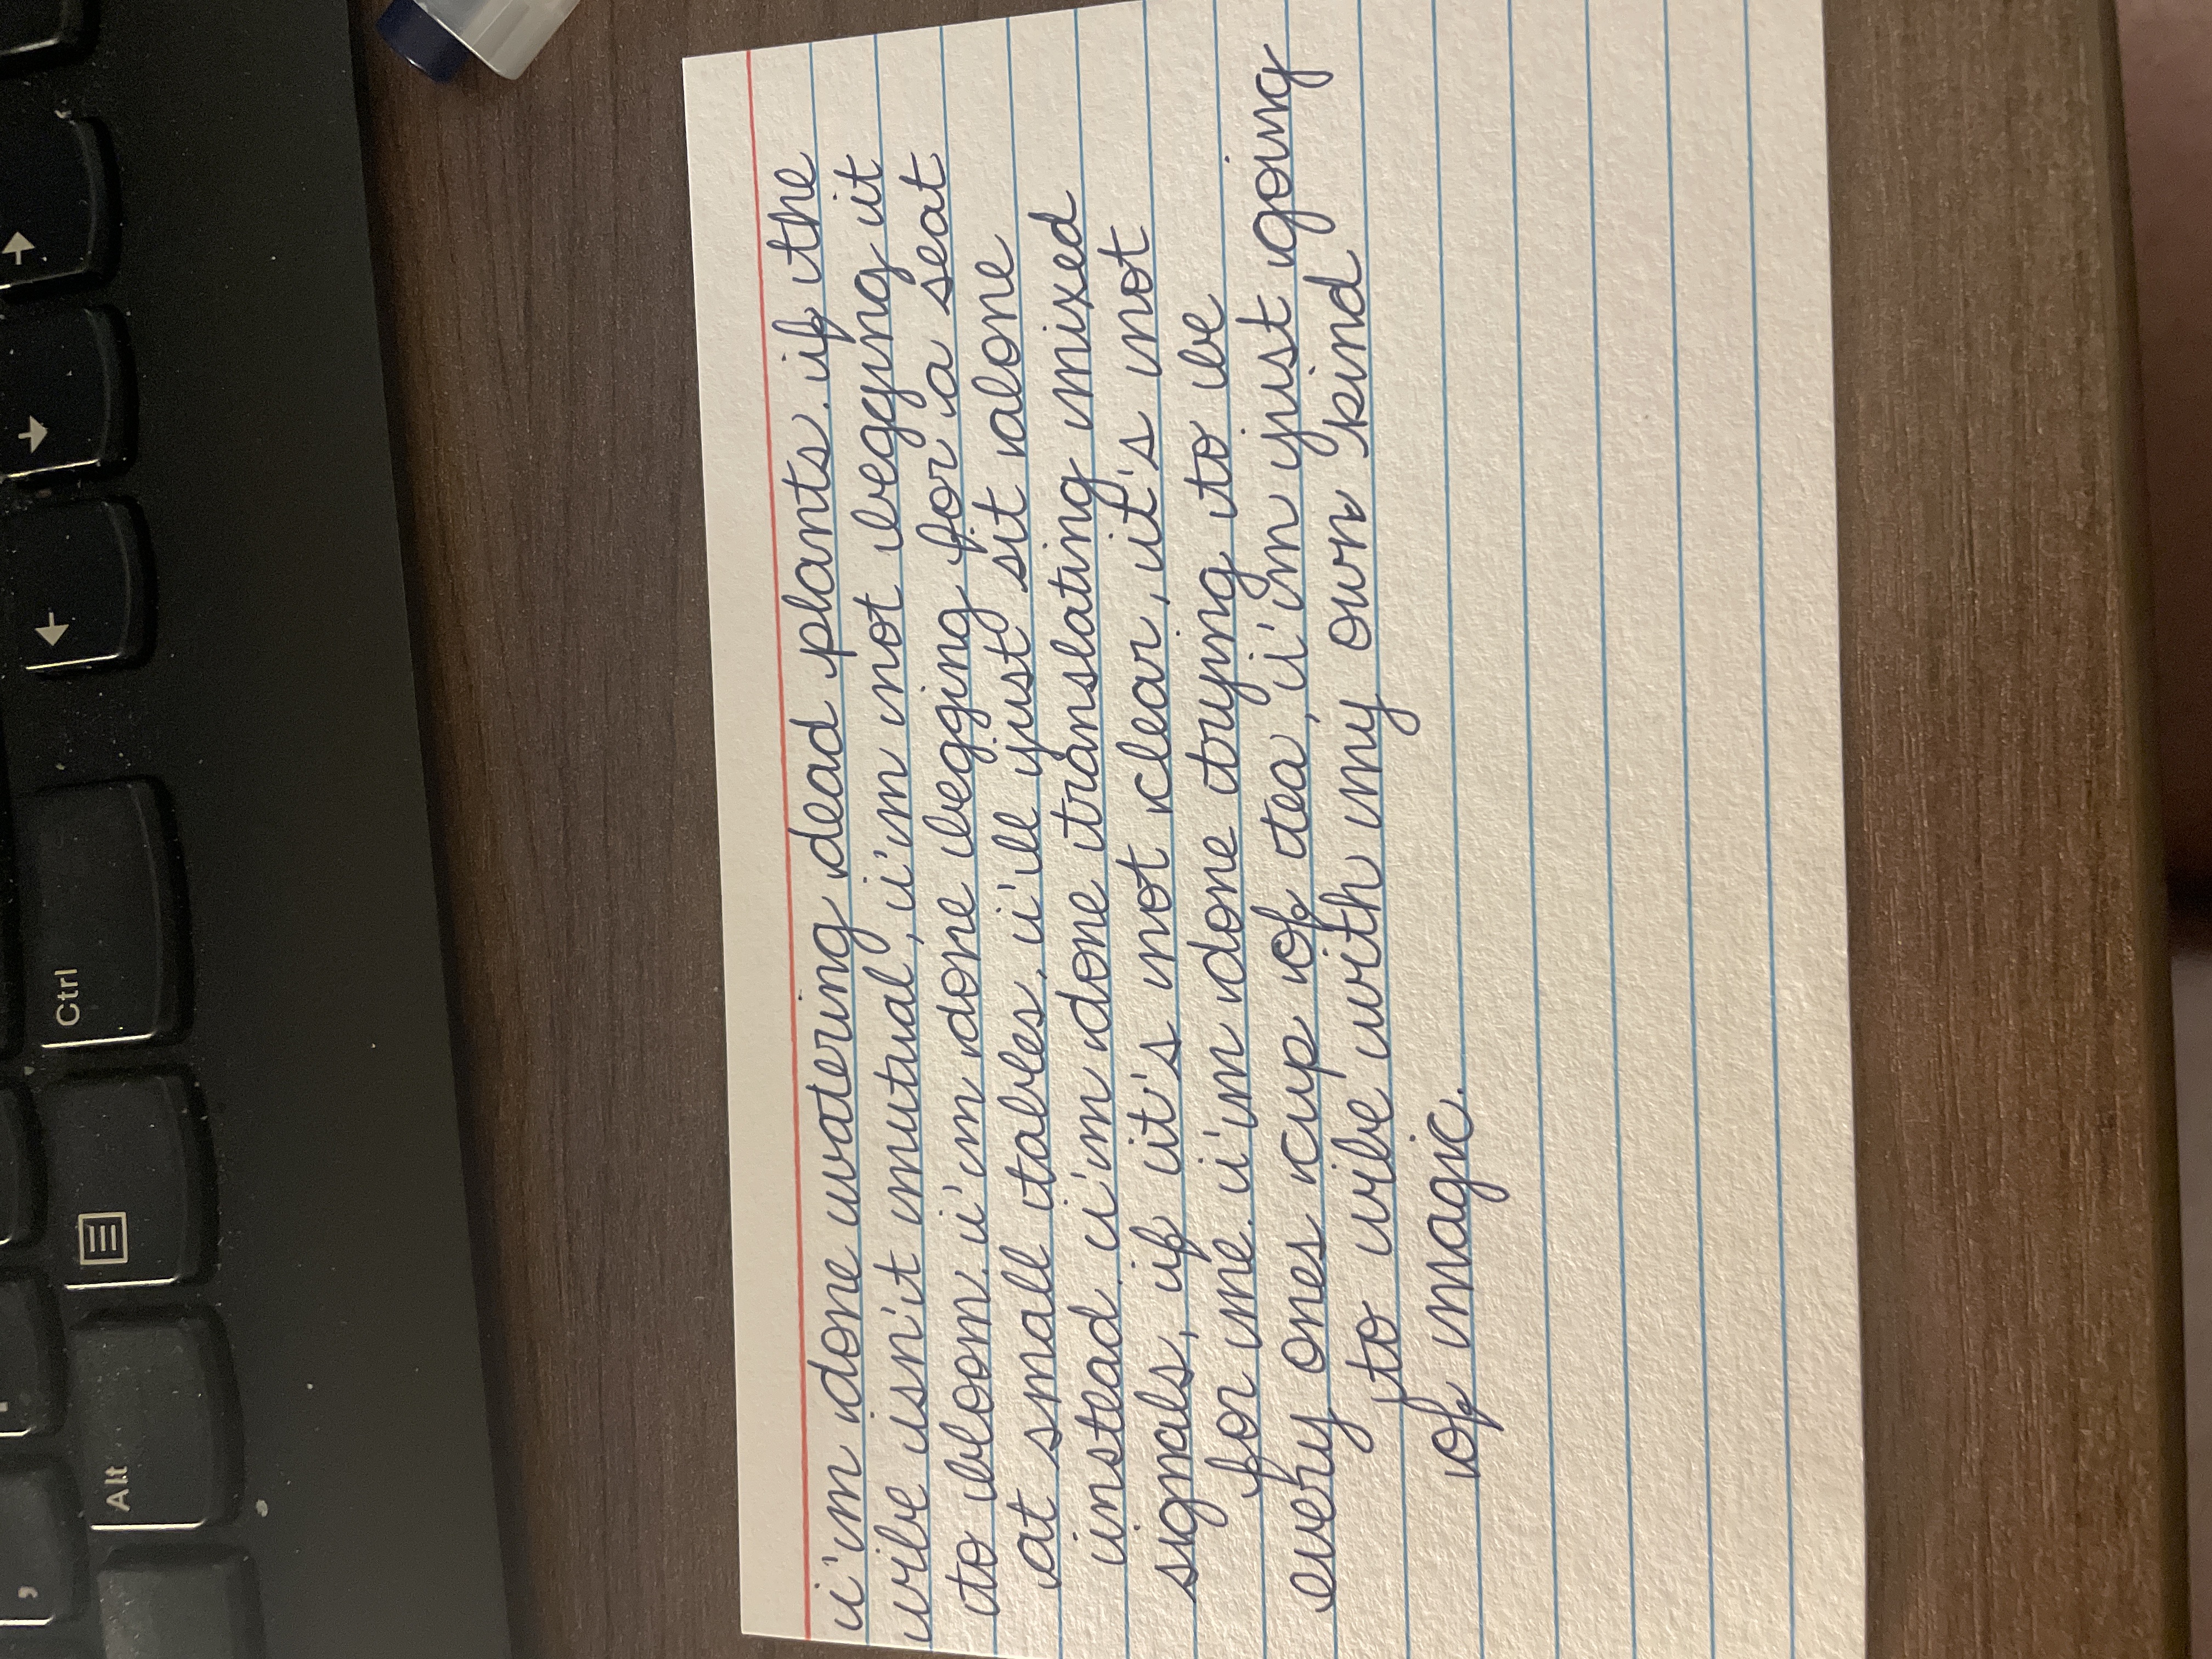 i'm done watering dead plants. if the
vibe isn't mutual, i'm not begging it
to bloom. i'm done begging for a seat
at small tables. i'll just sit alone
instead. i'm done translating mixed
signals, if it's not clear, it's not
for me. i'm done trying to be
every ones cup of tea, i'm just going
to vibe with my own kind
of magic.
Ctrl
Alt